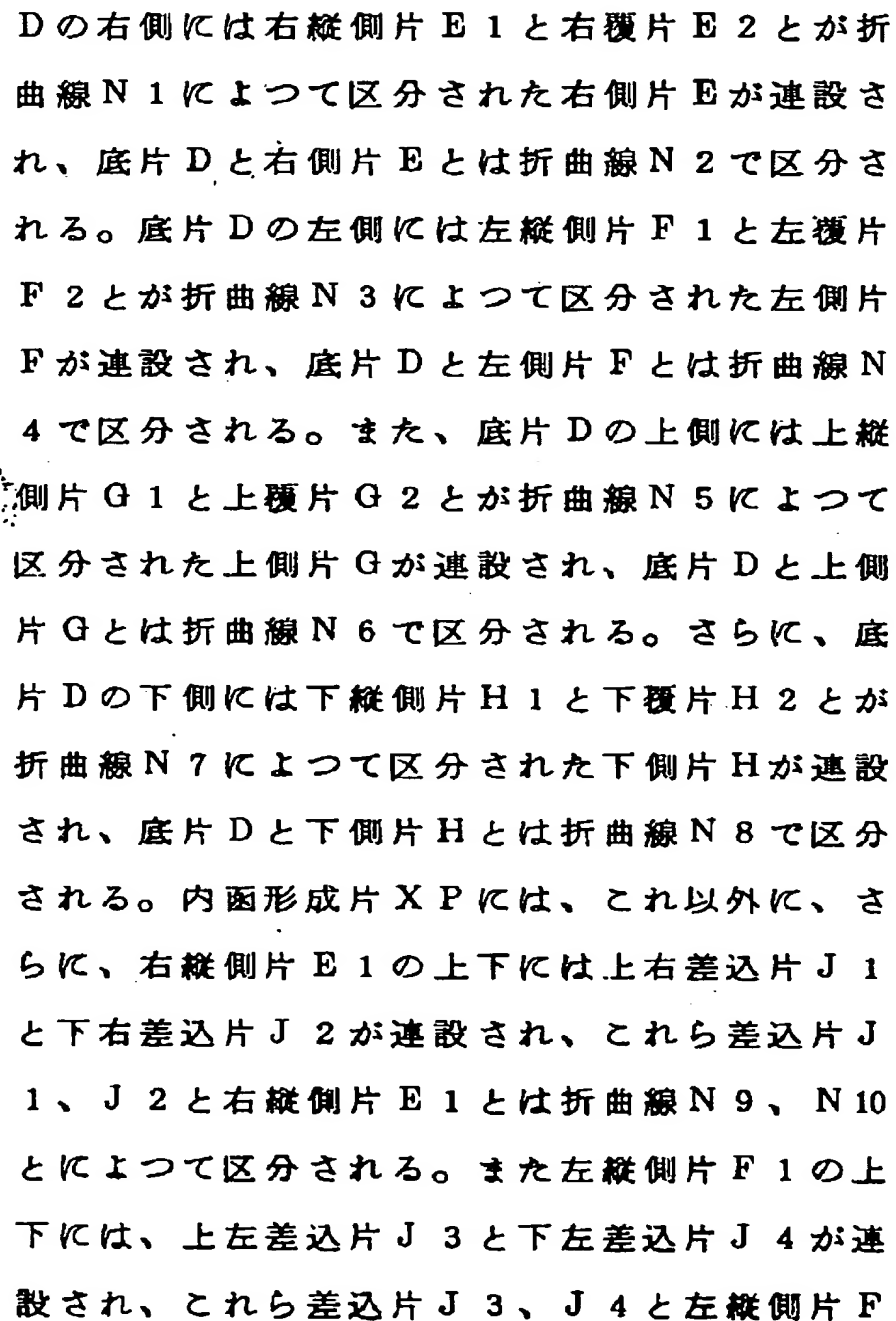 Dの右側には右縦側片E1と右覆片E2とが折
曲線N1によつて区分された右側片Eが連設さ
れ、底片Dと右側片Eとは折曲線N2で区分さ
れる。底片Dの左側には左縦側片F1と左覆片
F2とが折曲線N3によつて区分された左側片
Fが連設され、底片Dと左側片Fとは折曲線N
4で区分される。また、底片Dの上側には上縦
側片G1と上覆片G2とが折曲線N5によつて
区分された上側片Gが連設され、底片Dと上側
片Gとは折曲線N6で区分される。さらに、底
片Dの下側には下縦側片H1と下覆片H2とが
折曲線N7によつて区分された下側片Hが連設
され、底片Dと下側片Hとは折曲線N8で区分
される。内函形成片XPには、これ以外に、さ
らに、右縦側片E1の上下には上右差込片J1
と下右差込片J2が連設され、これら差込片J
1、J2と右縦側片E1とは折曲線N9、N10
とによつて区分される。また左縦側片F1の上
下には、上左差込片J3と下左差込片J4が連
設され、これら差込片J3、J4と左縦側片F